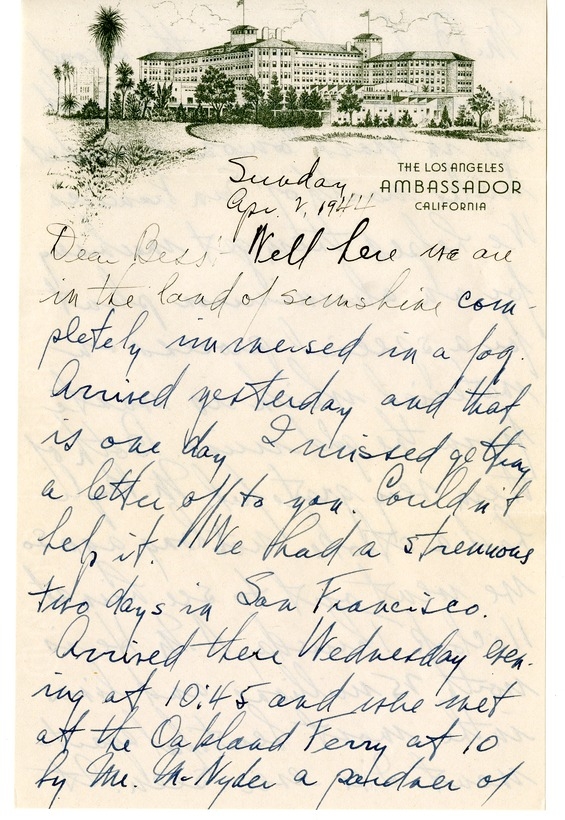 THE LOS ANGELES
AMBASSADOR
CALIFORNIA
Sunday
Apr. 2, 1944
Dear Bess: Well here we are
in the land of sunshine com-
pletely immersed in a fog.
Arrived yesterday and that
is one day I missed getting
a letter off to you. Couldn't
help it. We had a strenuous
two days in San Francisco.
Arrived there Wednesday even-
ing at 10:45 and were met
at the Oakland Ferry at 10
by Mr. a pardner of